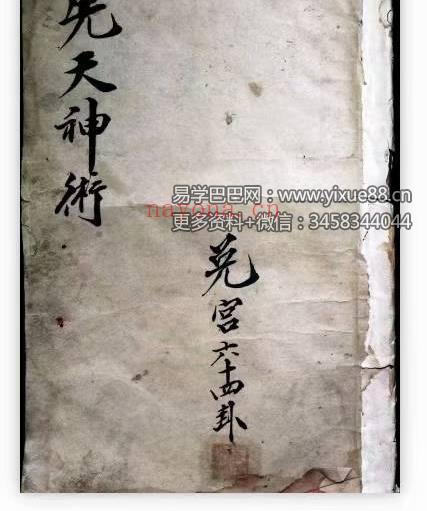 先天神術
兑宫六十四卦
易学巴巴网：www.yixue88.cn
nayona.cn
更多资料+微信：3458344044